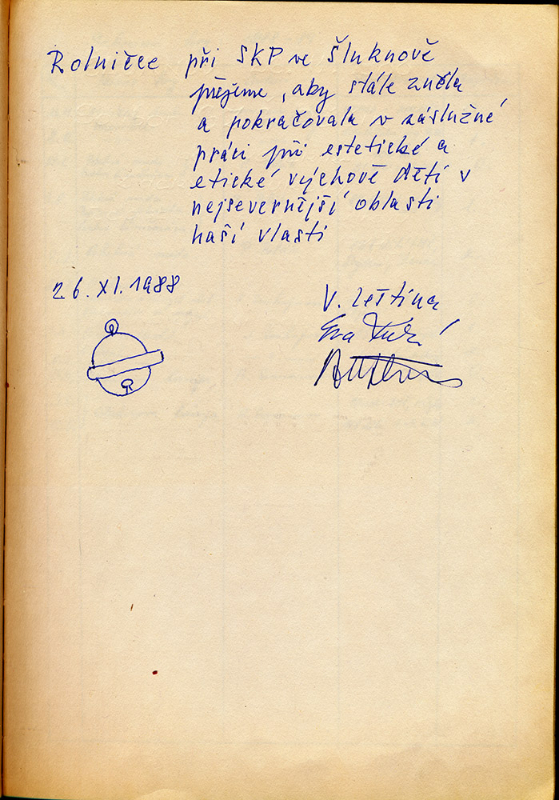 Rolničce při SKP ve Šluknově
přejeme, aby stále zněla
a pokračovala v záslužné
práci při estetické a
etické výchově dětí v
nejsevernější oblasti
naší vlasti
26. XI. 1988
V. Leština
Eva